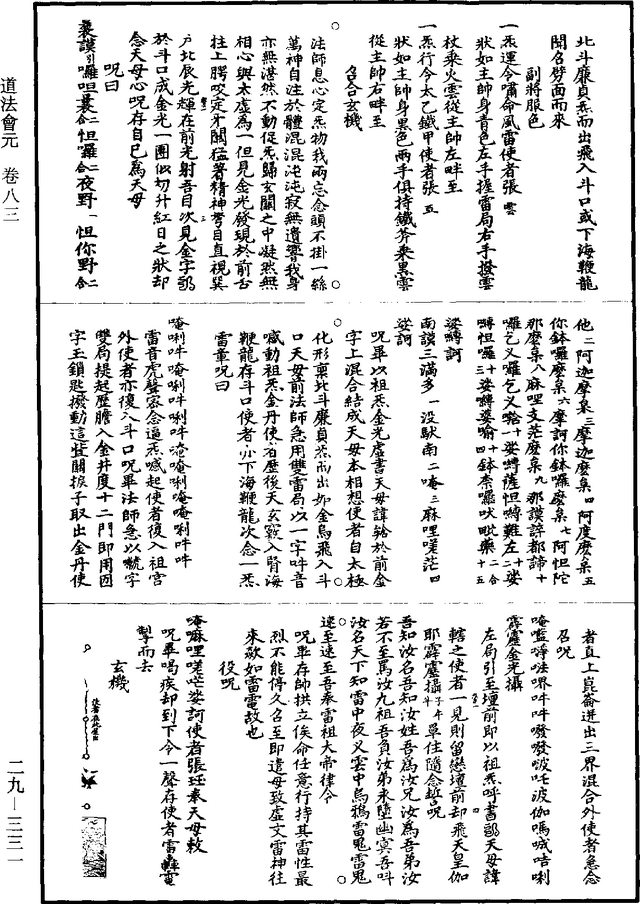 道法會元 卷八三
北斗廉貞炁而出飛入斗口或下海鞭龍
聞名劈面而來
副將服色
一炁運令嘯命風雷使者張雲
狀如主帥身青色左手握雷局右手撥雲
杖乘火雲從主帥左畔至
一炁行令太乙鐵甲使者張五
狀如主帥身黑色兩手俱持鐵斧乘黑雲
從主帥右畔至
召合玄機
法師息心定炁物我兩忘念頭不掛一絲
萬神自注於體混混沌沌寂無遺響我身
亦無湛然不動促炁歸玄關之中凝然無
相心與太虛為一但見金光發現於前舌
拄上腭咬定牙關猛著精神努目直視巽
戶北辰光輝在前光射吾目次見金字
於斗口成金光一團似初升紅日之狀却
念天母心呪存自已為天母
呪曰
曩謨引囉呾曩二合怛囉二合夜野一怛你野二合
他二阿迦摩枲三摩迦摩枲四阿度麼枲五
你鉢囉麼枲六摩訶你鉢囉麼枲七阿怛陀
那麼枲八麻里支茫麼枲九那謨謘都謘十
囉乞叉囉乞叉𠷑十一娑嚩薩怛嚩難左十二娑
嚩怛囉十三娑嚩婆喻十四鉢柰囉吠毗藥二合十五
娑嚩訶
南謨三滿多一沒馱南二唵三麻哩唧茫四
娑訶
呪畢以祖炁金光虛書天母諱於前金
字上混合結成天母本相想使者自太極
化形稟北斗廉貞炁而出如金烏飛入斗
口天母前法師急用雙雷局以一字吽音
喊動祖炁金丹使右歷後天玄竅入腎海
鞭龍存斗口使者亦下海鞭龍次念一炁
雷章呪曰
唵唎吽唵唎吽唎吽唵唵唎唵唵唎吽吽
雷音虎聲密念逼炁喊起使者復入祖宮
外使者亦復入斗口呪畢法師急以唬字
雙局提起歷膽入金井度十二門即用囙
字玉鎖匙撥動這些關捩子取出金丹使
者直上崑崙迸出三界混合外使者急念
召呪
霹靂金光攝
左局引至壇前即以祖炁呼書天母諱
轄之使者一見則留戀壇前却飛天皇伽
耶霹靂攝單住隨念誓呪
吾知汝名吾知汝姓吾為汝兄汝為吾弟汝
若不至罵汝九祖吾負汝弟永墮幽冥吾呌
汝名天下知雷中夜叉雲中烏鴉雷鬼雷鬼
速至速至吾奉雷祖大帝律令
呪畢存帥拱立俟命任意行持其雷性最
烈不能停久召至即遣毋致虛文雷神往
來欻如雷電故也
役呪
唵嘛哩唧𠰷娑訶使者張珏奉天母敕
呪畢喝疾却到下令一聲存使者雷轟電
掣而去
玄機
二九—三三一